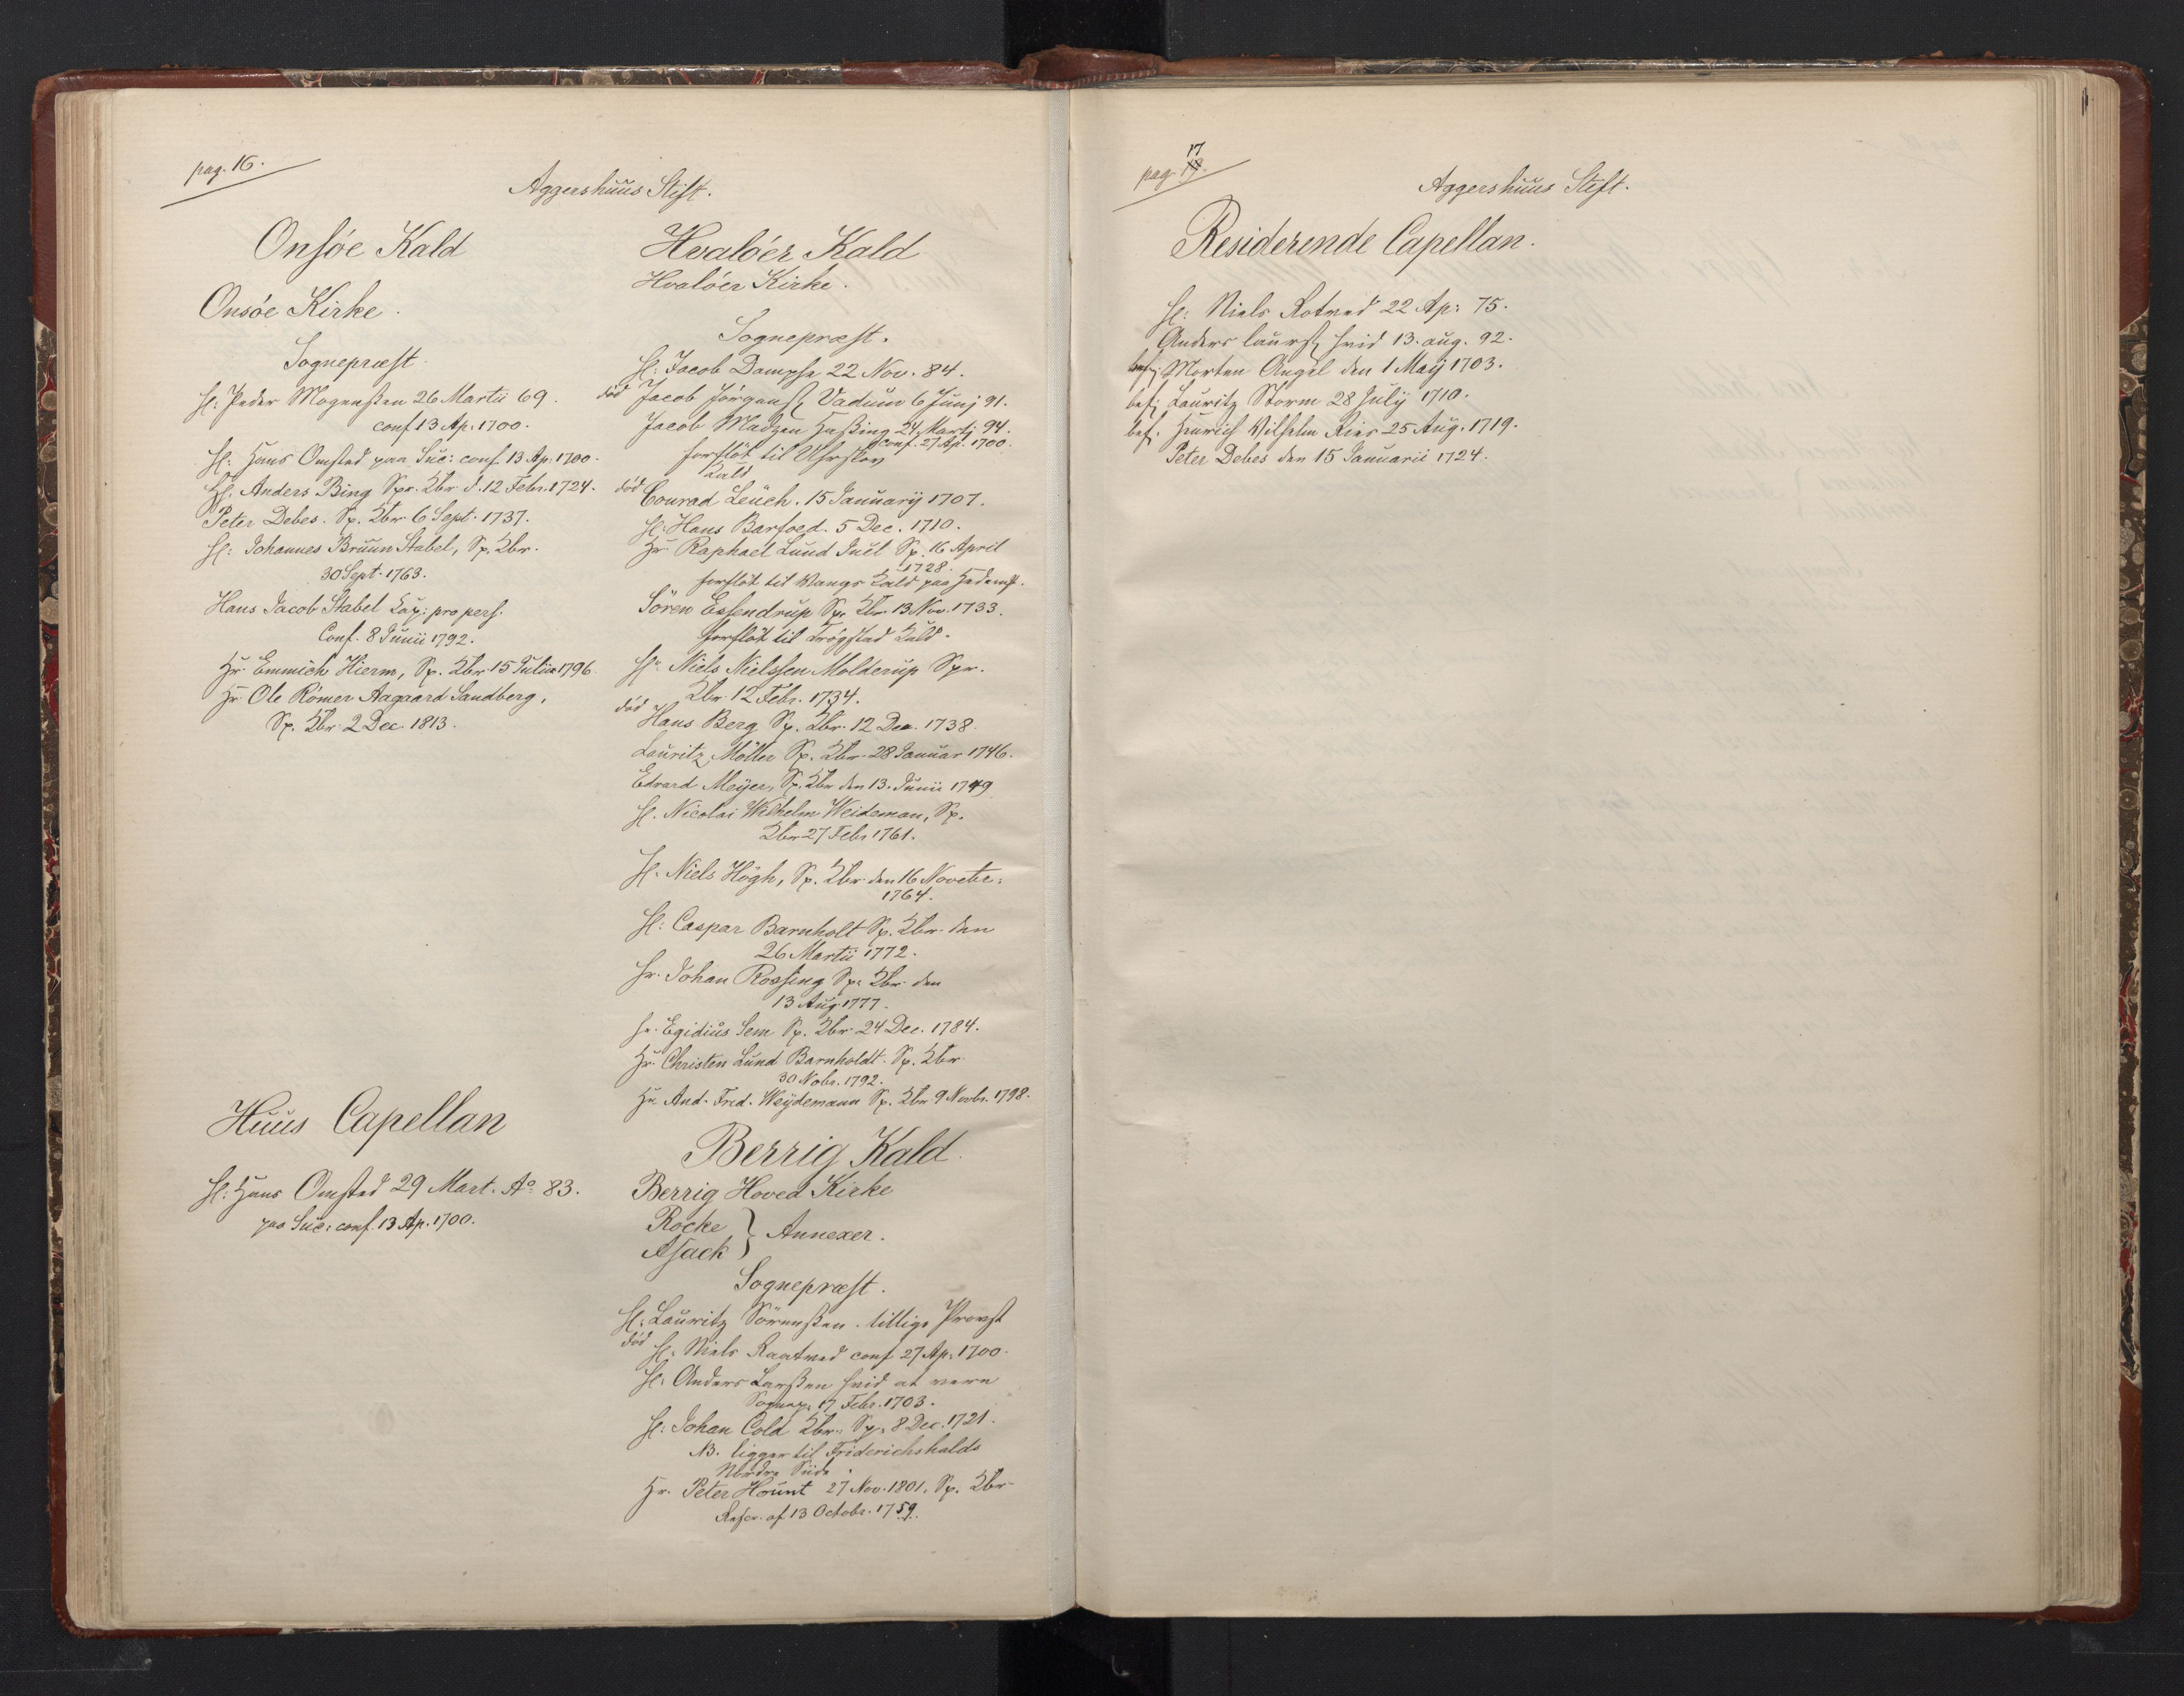 pag. 16.
Aggershuus Stift.
Onsøe Kald
Onsöe Kirke.
Sognepræst.
H: Peder Mogenssen 26 Martii 69.
conf 13 Ap. 1700.
H: Hans Omsted paa Suc: conf. 13 Ap. 1700.
H. Anders Bing Spr. Kbr. d. 12 Febr. 1724.
Peter Debes. Sp. Kbr. 6 Sept. 1737.
H: Johannes Bruun Stabel, Sp. Kbr.
30 Sept. 1763.
Hans Jacob Stabel Cap: pro pers.
Conf. 8 Junii 1792.
Hr. Emmich Hierm, Sp. Kbr 15 Julii 1796.
Hr. Ole Römer Aagaard Sandberg,
Sp. Kbr. 2 Dec. 1813.
Huus Capellan
H: Hans Omsted 29 Mart. Ao. 83.
paa Suc: conf. 13 Ap. 1700.
Hvalöer Kald
Hvalöer Kirke.
Sognepræst.
H: Jacob Dampse 22 Nov. 84.
död Jacob Jörgens. Vadum 6 Junj 91.
Jacob Madzen Hussing 24 Martj 94.
conf. 27 Ap. 1700.
forflöt til
Kald
död Conrad Leuch. 15 Januarij 1707.
H. Hans Barfoed. 5 Dec. 1710.
Hr. Raphael Lund Juel Sp. 16 April
1728.
forflöt til Wangs Kald paa Hedem.
Sören Essendrup Sp. Kbr. 13 Nov. 1733.
forflöt til Trögstad Kald.
Hr. Niels Nielssen Molderup Spr.
Kbr. 12 Febr. 1734.
död Hans Berg Sp. Kbr. 12 Dec. 1738.
Lauritz Möller Sp. Kbr. 28 Januar 1746.
Edvard Meyer, Sp. Kbr den 13. Junii 1749
H. Nicolai Wilhelm Weideman, Sp.
Kbr 27 Febr 1761.
H. Niels Högh, Sp. Kbr. den 16 Novebr.
1764.
H: Caspar Barnholt Sp. Kbr. den
26 Martii 1772.
Hr. Johan Rossing Sp. Kbr den
13 Aug. 1777.
Hr. Egidius Sem Sp. Kbr. 24 Dec. 1784.
Hr. Christen Lund Barnholdt. Sp. Kbr
30 Nobr. 1792.
Hr. And. Fred. Weydemann Sp. Kbr 9 Novbr. 1798.
Berrig Kald.
Berrig Hoved Kirke
Rocke
Asack } Annexer.
Sognepræst.
H: Lauritz Sörenssen. tillige Provst
död H: Niels Raatved conf 27 Ap. 1700.
H: Anders Larssen Hvid at være
Sognep. 17 Febr. 1703.
H: Johan Cold Kbr. Sp. 8 Dec. 1721.
NB. ligger til Friderichshalds
Nordre Siide.
Hr. Peter Hount 27 Nov. 1801. Sp. Kbr
Rescr. af 13 Octobr. 1759.
pag. 17
Aggershuus Stift.
Residerende Capellan.
H: Niels Rotved 22 Ap: 75.
Anders Laurs. Hvid 13. aug. 92.
bef; Morten Angel den 1 Maij 1703.
bef; Lauritz Storm 28 July 1710.
bef. Henrich Wilhelm Ries 25 Aug. 1719.
Peter Debes den 15 Januarii 1724.